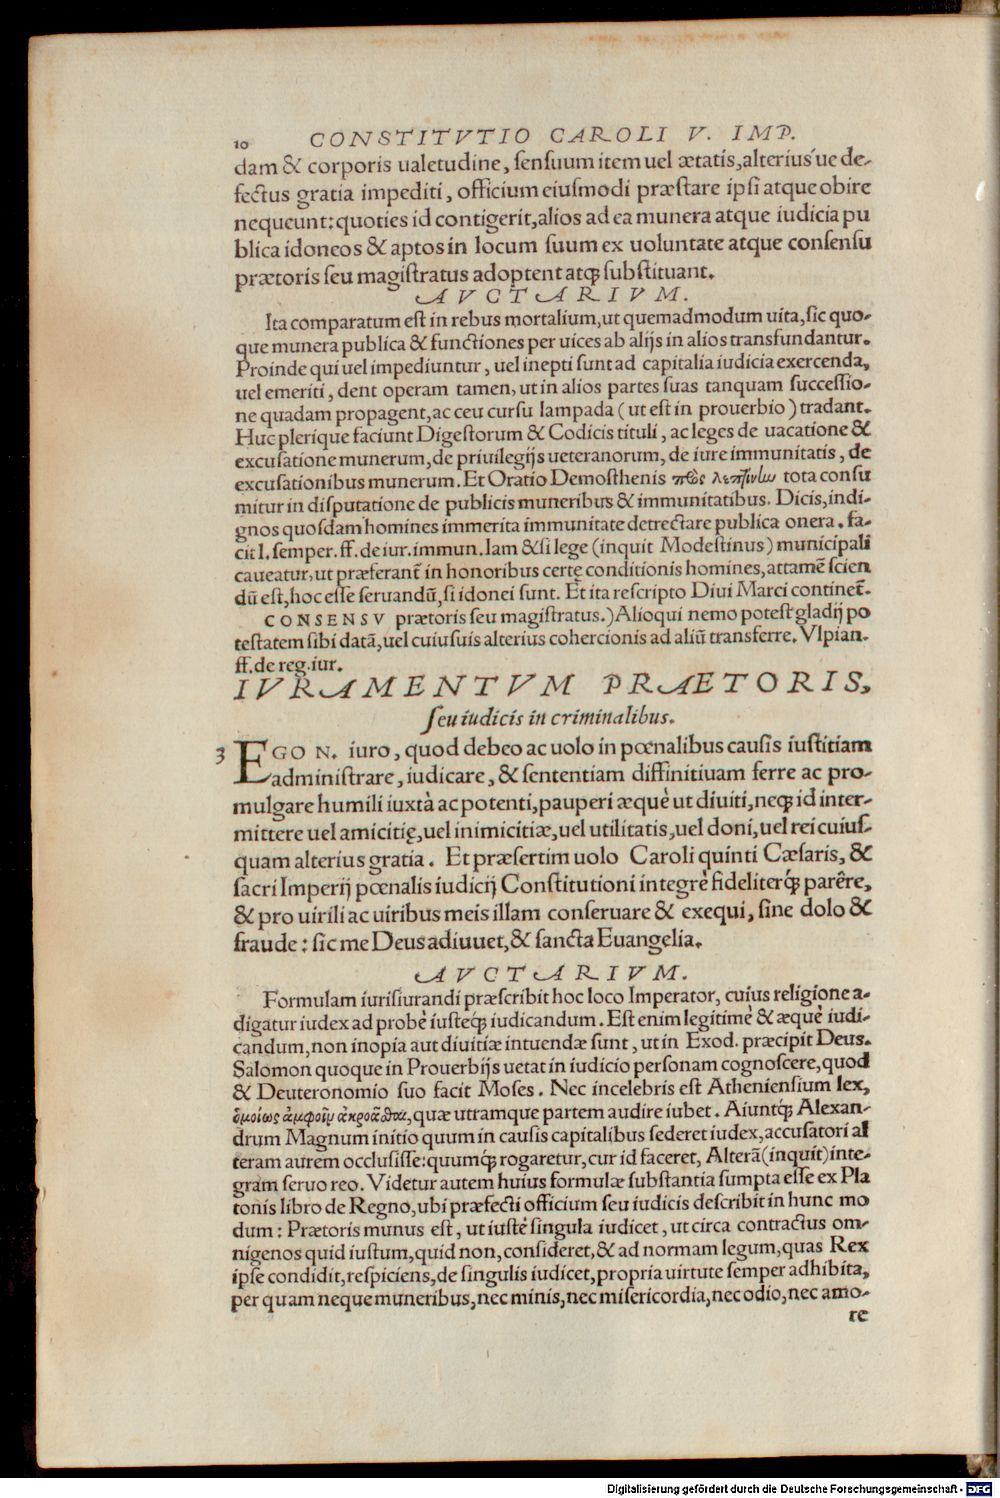 10 CONSTITVTIO CAROLI V. IMP.
dam & corporis ualetudine, ſenſuum item uel ætatis, alterius´ue de-
fectus gratia impediti, officium eiuſmodi præſtare ipſi atque obire
nequeunt: quoties id contigerit, alios ad ea munera atque iudicia pu
blica idoneos & aptos in locum ſuum ex uoluntate atque conſenſu
prætoris ſeu magiſtratus adoptent atq́; ſubſtituant.
AVCTARIVM.
Ita comparatum eſt in rebus mortalium, ut quemadmodum uita, ſic quo-
que munera publica & functiones per uices ab alijs in alios transfundantur.
Proinde qui uel impediuntur, uel inepti ſunt ad capitalia iudicia exercenda,
uel emeriti, dent operam tamen, ut in alios partes ſuas tanquam ſucceſſio-
ne quadam propagent, ac ceu curſu lampada (ut eſt in prouerbio) tradant.
Huc plerique faciunt Digeſtorum & Codicis tituli, ac leges de uacatione &
excuſatione munerum, de priuilegijs ueteranorum, de iure immunitatis, de
excuſationibus munerum. Et Oratio Demoſthenis πρὸς λεπτίνην tota conſu
mitur in diſputatione de publicis muneribus & immunitatibus. Dicis, indi-
gnos quoſdam homines immerita immunitate detrectare publica onera. fa-
cit l. ſemper. ff. de iur. immun. Iam & ſi lege (inquit Modeſtinus) municipali
caueatur, ut præferant̃ in honoribus certę conditionis homines, attamẽ ſcien
dũ eſt, hoc eſſe ſeruandũ, ſi idonei ſunt. Et ita reſcripto Diui Marci continet̃.
CONSENSV prætoris ſeu magiſtratus.) Alioqui nemo poteſt gladij po
teſtatem ſibi datã, uel cuiuſuis alterius cohercionis ad aliũ transferre. Vlpian.
ff. de reg. iur.
IVRAMENTVM PRAETORIS,
ſeu iudicis in criminalibus.
3 EGO N. iuro, quod debeo ac uolo in pœnalibus cauſis iuſtitiam
adminiſtrare, iudicare, & ſententiam diffinitiuam ferre ac pro-
mulgare humili iuxtà ac potenti, pauperi æquè ut diuiti, neq́; id inter-
mittere uel amicitię, uel inimicitiæ, uel utilitatis, uel doni, uel rei cuiuſ-
quam alterius gratia. Et præſertim uolo Caroli quinti Cæſaris, &
ſacri Imperij pœnalis iudicij Conſtitutioni integrè fideliterq́; parêre,
& pro uirili ac uiribus meis illam conſeruare & exequi, ſine dolo &
fraude: ſic me Deus adiuuet, & ſancta Euangelia.
AVCTARIVM.
Formulam iuriſiurandi præſcribit hoc loco Imperator, cuius religione a-
digatur iudex ad probè iuſteq́; iudicandum. Eſt enim legitimè & æquè iudi-
candum, non inopia aut diuitiæ intuendæ ſunt, ut in Exod. præcipit Deus.
Salomon quoque in Prouerbijs uetat in iudicio perſonam cognoſcere, quod
& Deuteronomio ſuo facit Moſes. Nec incelebris eſt Athenienſium lex,
ὁμοίως ἀμφοῖν ἀκροᾶσθαι, quæ utramque partem audire iubet. Aiuntq́; Alexan-
drum Magnum initio quum in cauſis capitalibus ſederet iudex, accuſatori al
teram aurem occluſiſſe: quumq́; rogaretur, cur id faceret, Alterã (inquit) inte-
gram ſeruo reo. Videtur autem huius formulæ ſubſtantia ſumpta eſſe ex Pla
tonis libro de Regno, ubi præfecti officium ſeu iudicis deſcribit in hunc mo
dum: Prætoris munus eſt, ut iuſtè ſingula iudicet, ut circa contractus om-
nigenos quid iuſtum, quid non, conſideret, & ad normam legum, quas Rex
ipſe condidit, reſpiciens, de ſingulis iudicet, propria uirtute ſemper adhibita,
per quam neque muneribus, nec minis, nec miſericordia, nec odio, nec amo-
re
Digitalisierung gefördert durch die Deutsche Forschungsgemeinschaft - DFG